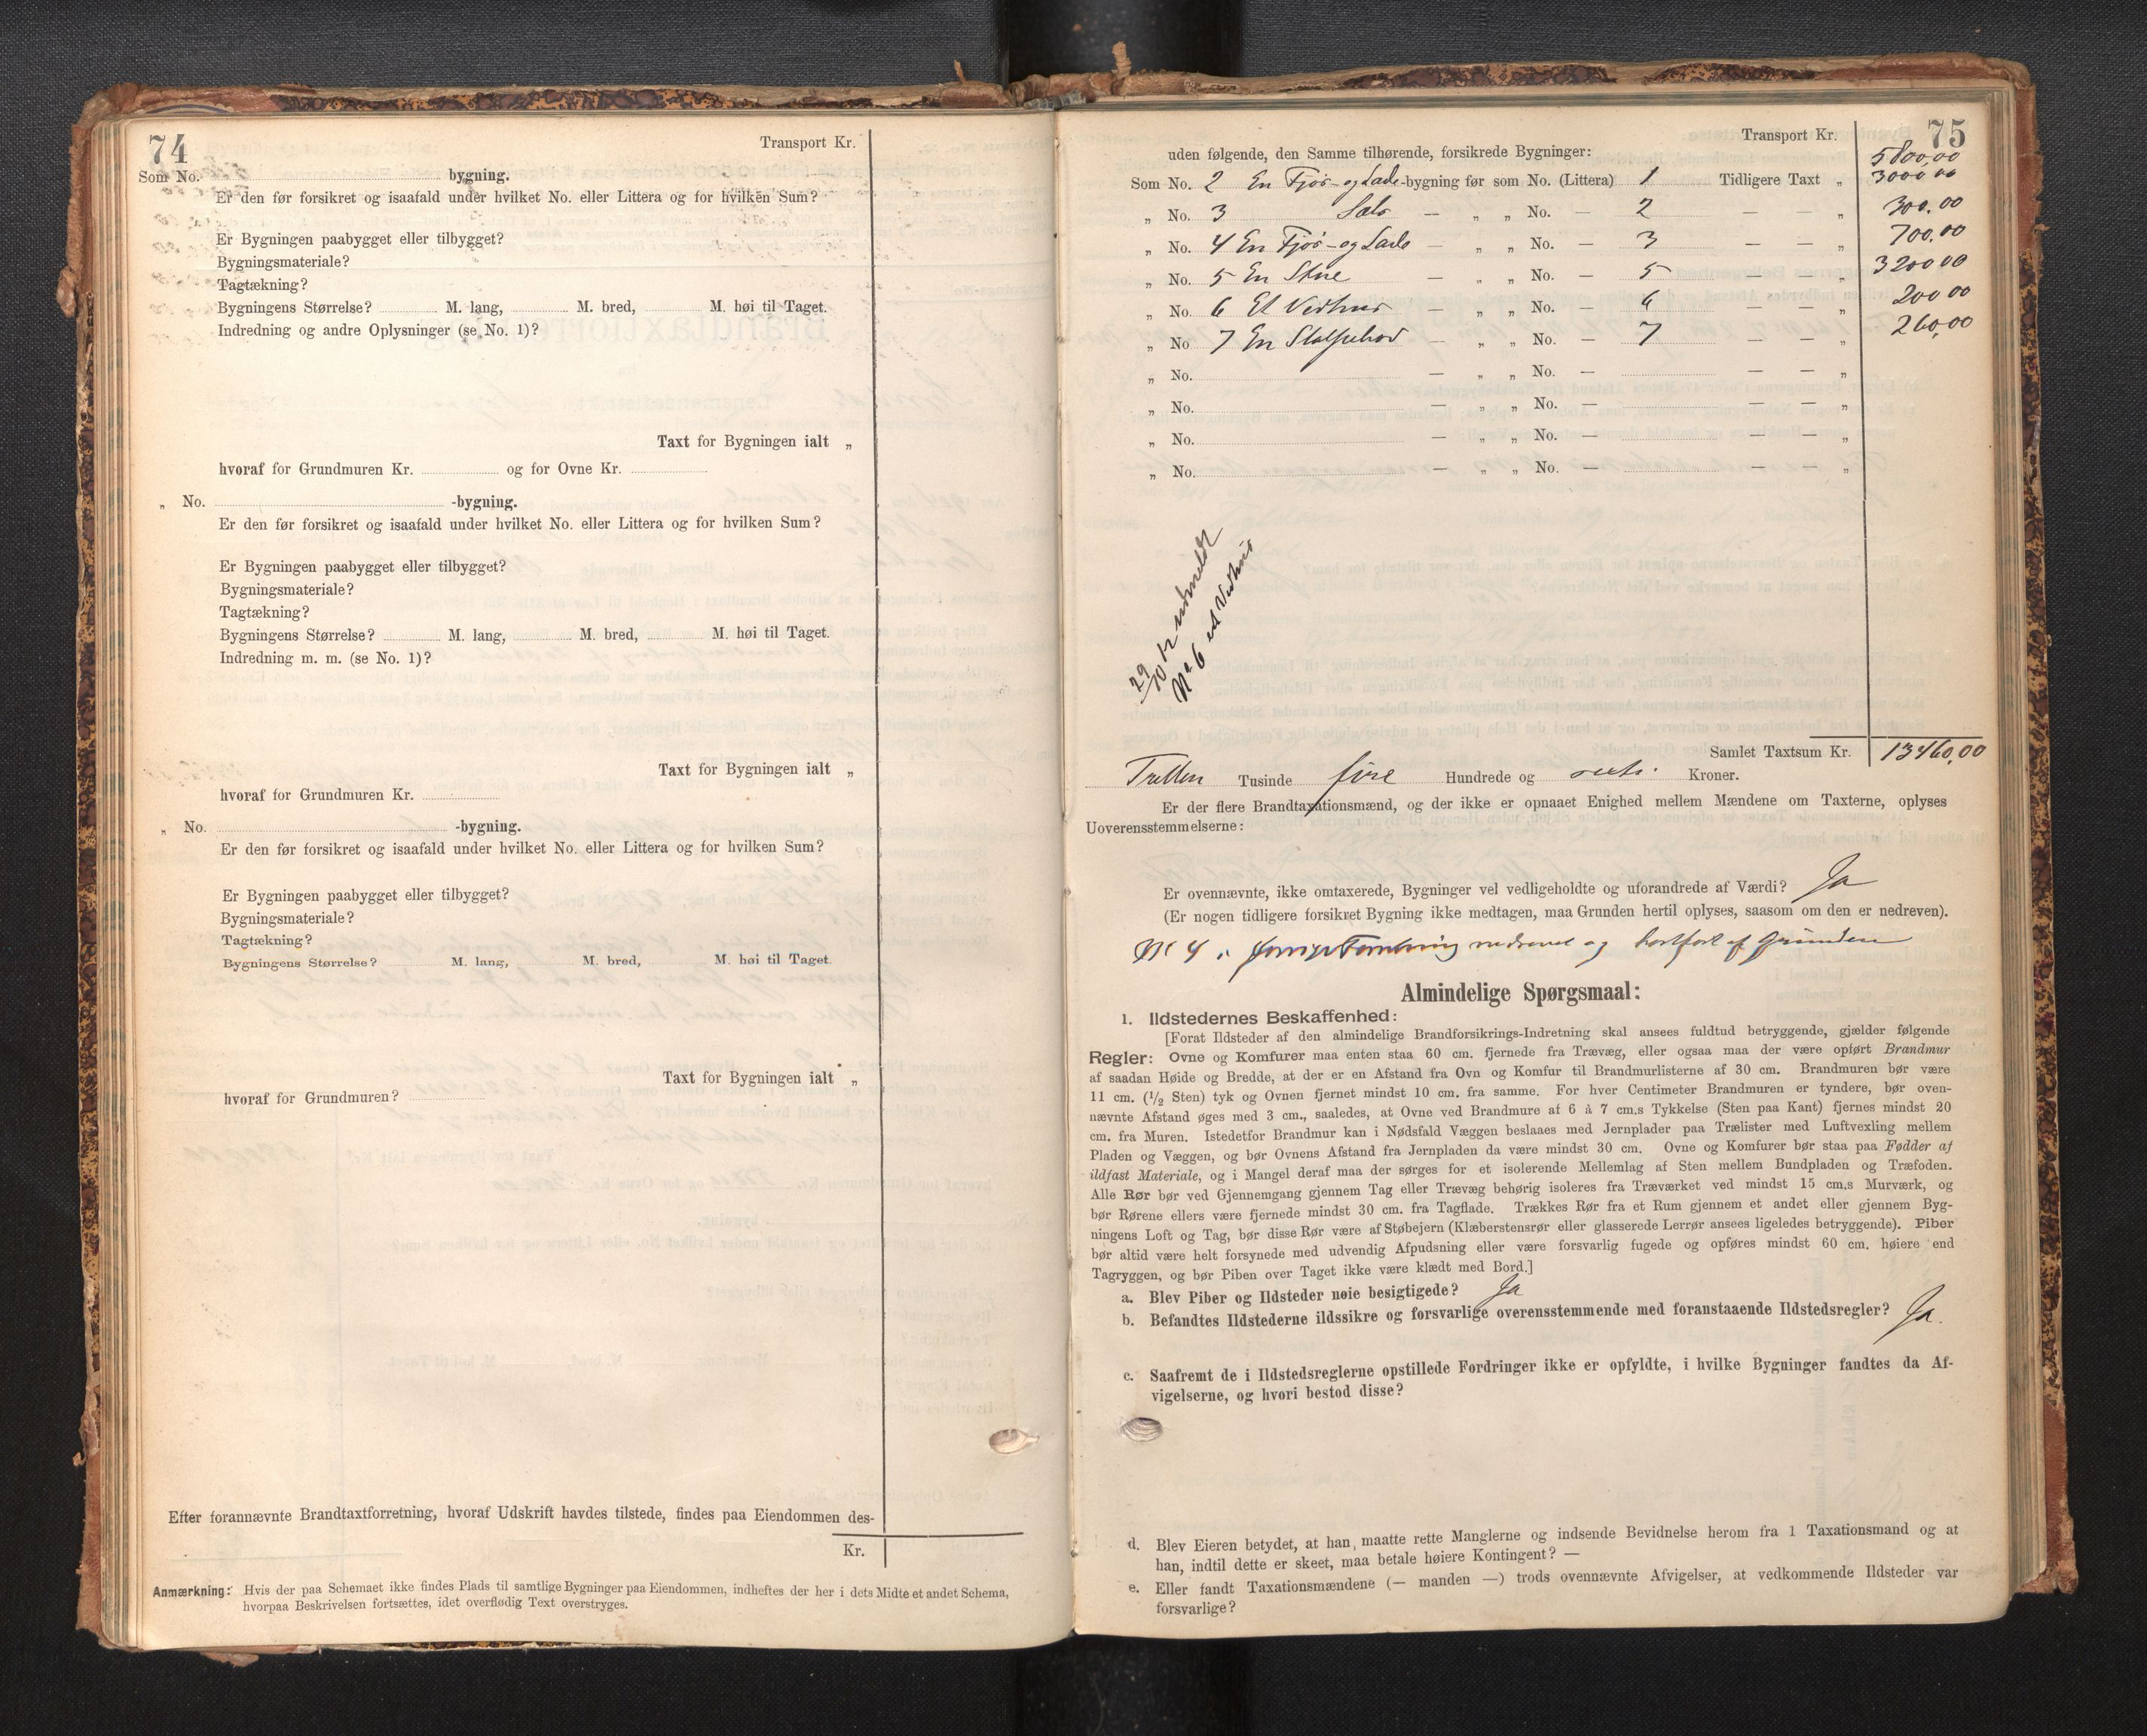 74
Transport Kr.
Som No. bygning.
Er den før forsikret og isaafald under hvilket No. eller Littera og for hvilken Sum?
Er Bygningen paabygget eller tilbygget?
Bygningsmateriale?
Tagtækning?
Bygningens Størrelse? M. lang, M. bred, M. høi til Taget.
Indredning og andre Oplysninger (se No. 1)?
Taxt for Bygningen ialt „
hvoraf for Grundmuren Kr. og for Ovne Kr.
„ No. -bygning.
Er den før forsikret og isaafald under hvilket No. eller Littera og for hvilken Sum?
Er Bygningen paabygget eller tilbygget?
Bygningsmateriale?
Tagtækning?
Bygningens Størrelse? M. lang, M. bred, M. høi til Taget.
Indredning m. m. (se No. 1)?
Taxt for Bygningen ialt „
hvoraf for Grundmuren Kr.
„ No. -bygning.
Er den før forsikret og isaafald under hvilket No. eller Littera og for hvilken Sum?
Er Bygningen paabygget eller tilbygget?
Bygningsmateriale?
Tagtækning?
Bygningens Størrelse? M. lang, M. bred, M. høi til Taget.
Taxt for Bygningen ialt „
hvoraf for Grundmuren?
Efter forannævnte Brandtaxtforretning, hvoraf Udskrift havdes tilstede, findes paa Eiendommen des-
Kr.
Anmærkning: Hvis der paa Schemaet ikke findes Plads til samtlige Bygninger paa Eiendommen, indheftes der her i dets Midte et andet Schema,
hvorpaa Beskrivelsen fortsættes, idet overflødig Text overstryges.
75
Transport Kr.
uden følgende, den Samme tilhørende, forsikrede Bygninger: 5800,00
Som No. 2 En Fjös- og Lade-bygning før som No. (Littera) 1 Tidligere Taxt „ 3000,00
„ No. 3 — „ „ No. — 2 — — „ 300,00
„ No. 4 En Fjös- og Lade — „ „ No. — 3 — — „ 700,00
„ No. 5 En Stue — „ „ No. — 5 — — „ 3200 00
„ No. 6 Et Vedhus — „ „ No. — 6 — — „ 200 00
„ No 7 En — „ „ No. — 7 — — „ 260,00
„ No. — „ „ No. — „
„ No. — „ „ No. — — — „
„ No. — „ „ No. — — — „
„ No. — „ „ No. — — — „
29/10 12 udmeldt
No 6 et Vedhus
Samlet Taxtsum Kr. 13460,00
Tretten Tusinde fire Hundrede og seksti Kroner.
Er der flere Brandtaxationsmænd, og der ikke er opnaaet Enighed mellem Mændene om Taxterne, oplyses
Uoverensstemmelserne:
Er ovennævnte, ikke omtaxerede, Bygninger vel vedligeholdte og uforandrede af Værdi? Ja
(Er nogen tidligere forsikret Bygning ikke medtagen, maa Grunden hertil oplyses, saasom om den er nedreven).
No 4 i forrige Forretning nedrevet og bortført af Grunden
Almindelige Spørgsmaal:
1. Ildstedernes Beskaffenhed:
[Forat Ildsteder af den almindelige Brandforsikrings-Indretning skal ansees fuldtud betryggende, gjælder følgende
Regler: Ovne og Komfurer maa enten staa 60 cm. fjernede fra Trævæg, eller ogsaa maa der være opført Brandmur
af saadan Høide og Bredde, at der er en Afstand fra Ovn og Komfur til Brandmurlisterne af 30 cm. Brandmuren bør være
11 cm. (1/2 Sten) tyk og Ovnen fjernet mindst 10 cm. fra samme. For hver Centimeter Brandmuren er tyndere, bør oven-
nævnte Afstand øges med 3 cm., saaledes, at Ovne ved Brandmure af 6 à 7 cm.s Tykkelse (Sten paa Kant) fjernes mindst 20
cm. fra Muren. Istedetfor Brandmur kan i Nødsfald Væggen beslaaes med Jernplader paa Trælister med Luftvexling mellem
Pladen og Væggen, og bør Ovnens Afstand fra Jernpladen da være mindst 30 cm. Ovne og Komfurer bør staa paa Fødder af
ildfast Materiale, og i Mangel deraf maa der sørges for et isolerende Mellemlag af Sten mellem Bundpladen og Træfoden.
Alle Rør bør ved Gjennemgang gjennem Tag eller Trævæg behørig isoleres fra Træværket ved mindst 15 cm.s Murværk, og
bør Rørene ellers være fjernede mindst 30 cm. fra Tagflade. Trækkes Rør fra et Rum gjennem et andet eller gjennem Byg-
ningens Loft og Tag, bør disse Rør være af Støbejern (Klæberstensrør eller glasserede Lerrør ansees ligeledes betryggende). Piber
bør altid være helt forsynede med udvendig Afpudsning eller være forsvarlig fugede og opføres mindst 60 cm. høiere end
Tagryggen, og bør Piben over Taget ikke være klædt med Bord.]
a. Blev Piber og Ildsteder nøie besigtigede? Ja
b. Befandtes Ildstederne ildssikre og forsvarlige overensstemmende med foranstaaende Ildstedsregler? Ja.
c. Saafremt de i Ildstedsreglerne opstillede Fordringer ikke er opfyldte, i hvilke Bygninger fandtes da Af-
vigelserne, og hvori bestod disse?
d. Blev Eieren betydet, at han maatte rette Manglerne og indsende Bevidnelse herom fra 1 Taxationsmand og at
han, indtil dette er skeet, maa betale høiere Kontingent? —
e. Eller fandt Taxationsmændene (— manden —) trods ovennævnte Afvigelser, at vedkommende Ildsteder var
forsvarlige?